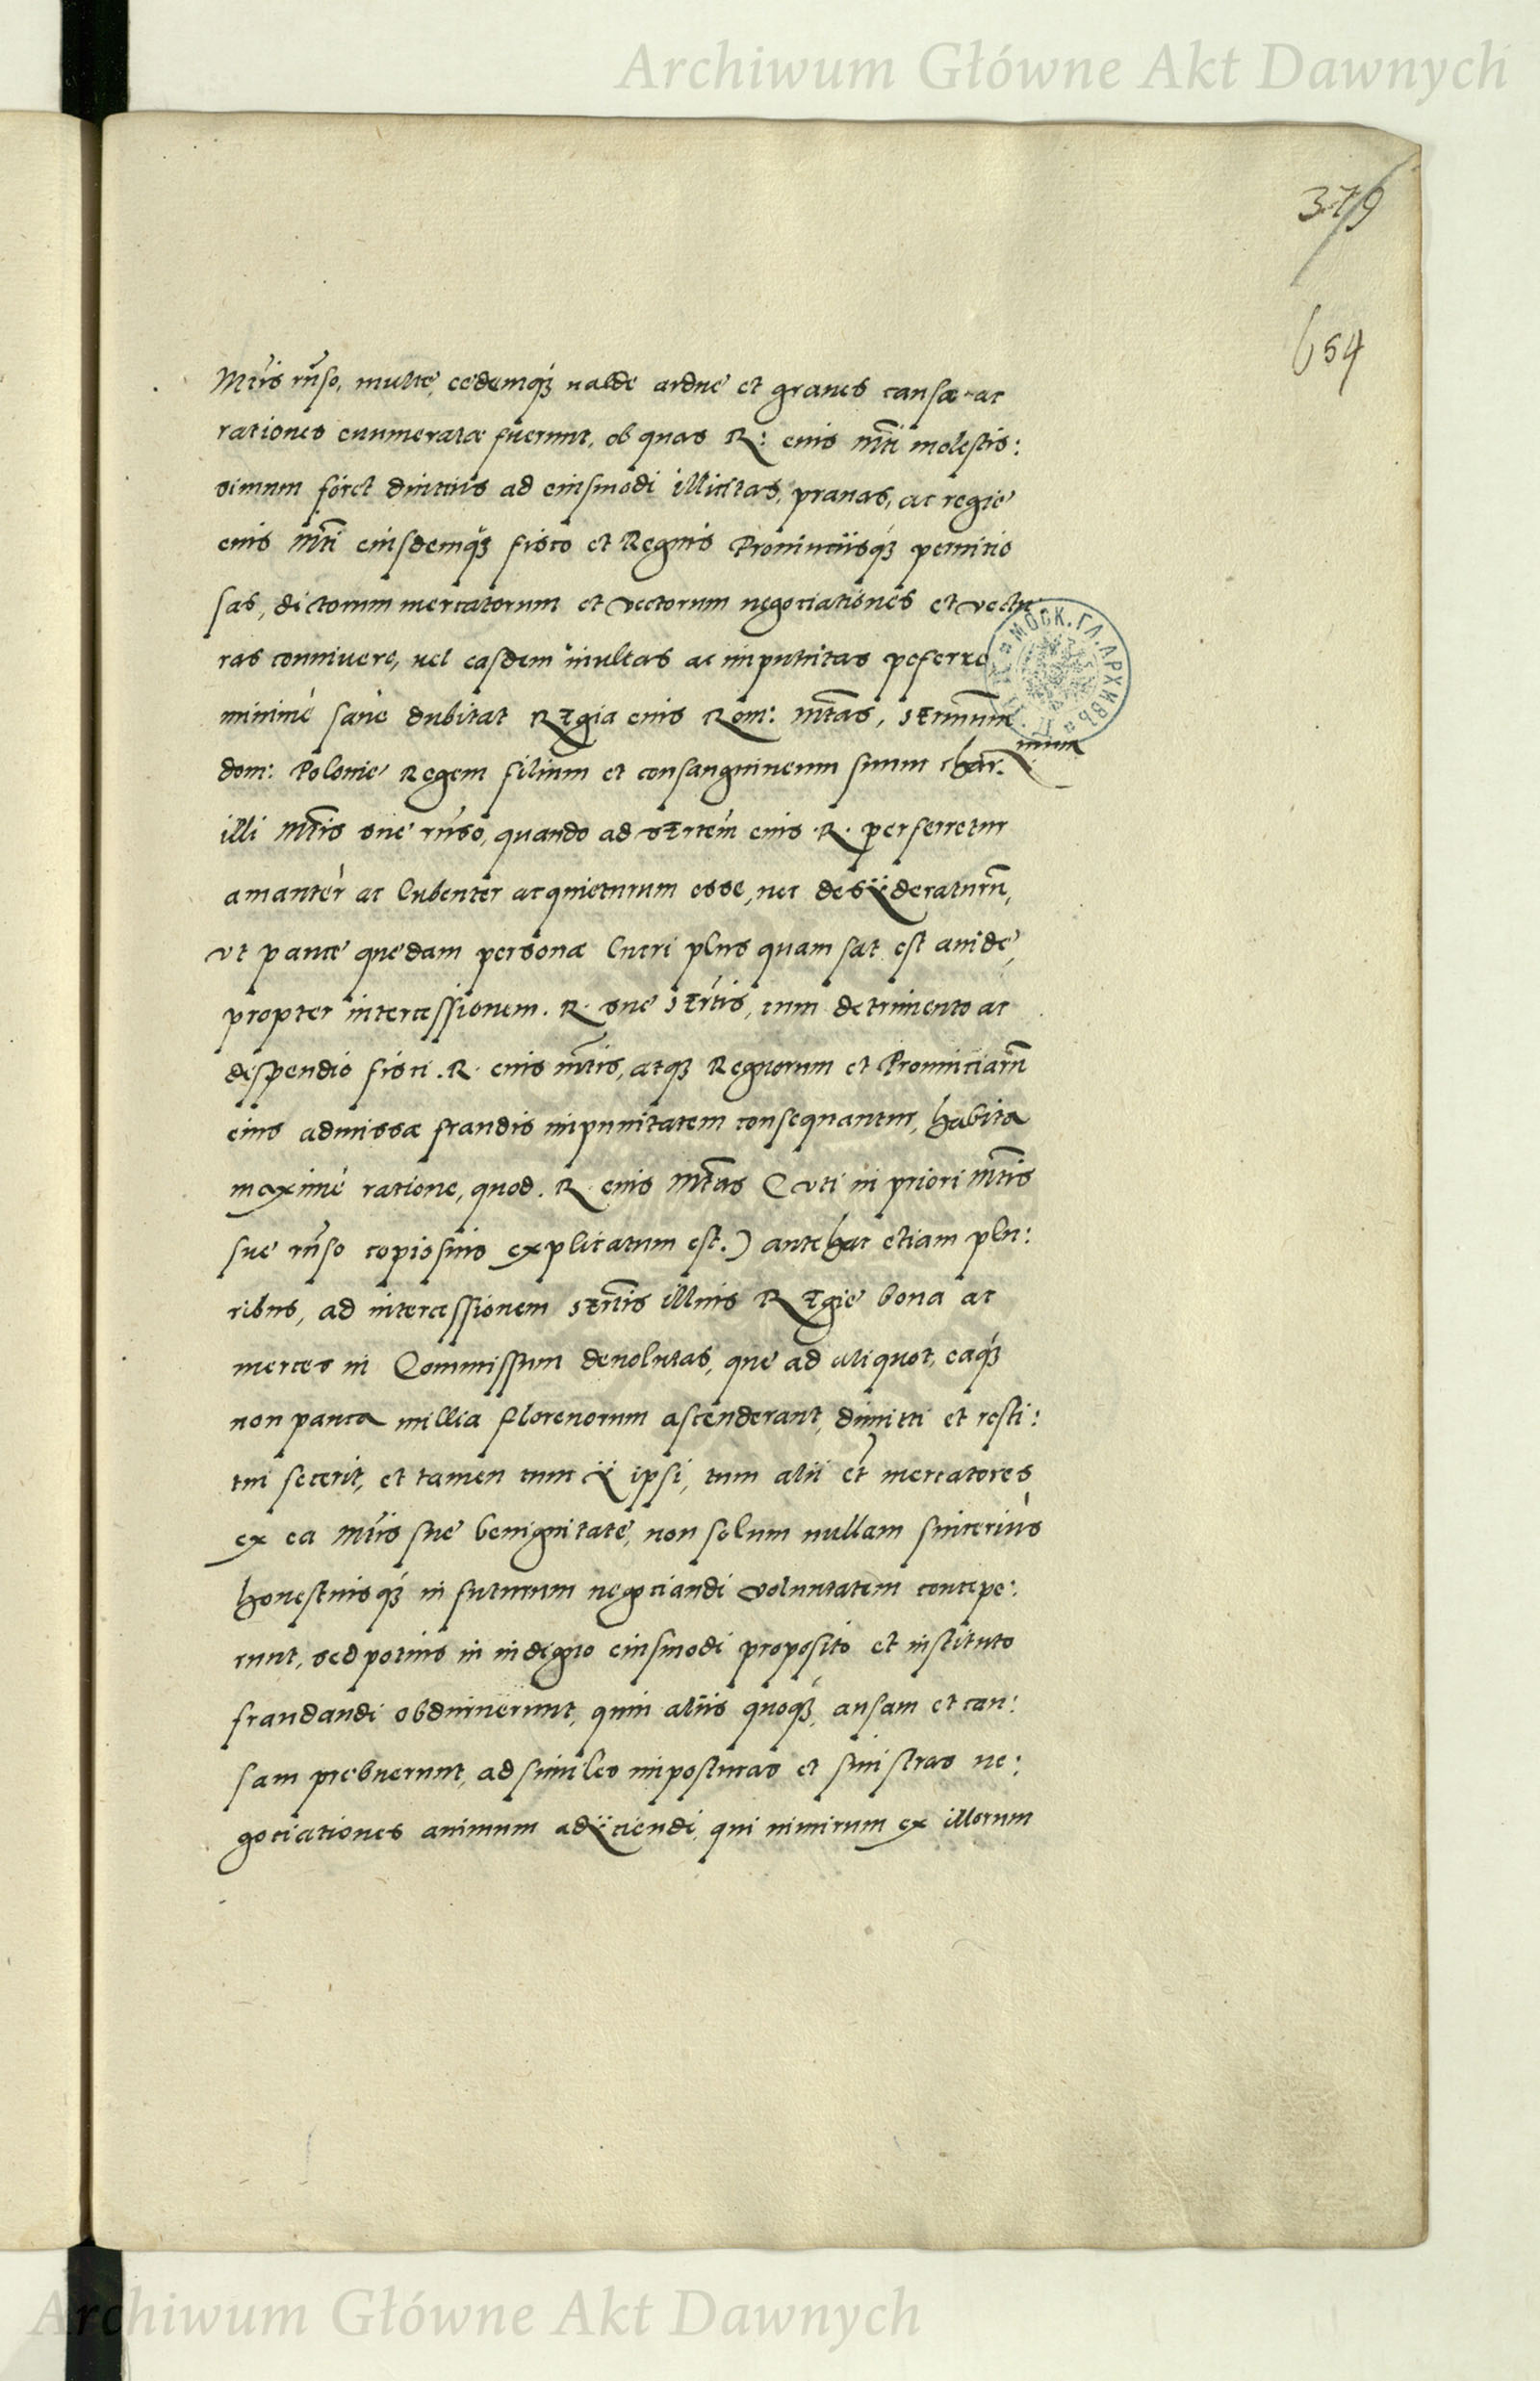 Archiwum Główne Akt Dawnych
379
654
Mtis rñso, multe, eedemq́ȝ ualde ardue et graues causæ ac
rationes enumeratæ fuerunt, ob quas R: eius Mti molestis:
simum foret diutius ad eiusmodi illicitas, prauas, ac regie
eius Mti eiusdemq́ȝ fisco et Regnis Prouinciisq́ȝ pernitio
sas, dictorum mercatorum et vectorum negociationes et vectu
ras conniuere, uel easdem inultas ac impunitas
minimè sanè dubitat Regia eius Rom: Mtas, Sermum
dom: Polonie Regem filium et consanguineum suum char: mum
illi Mtis sue rñso, quando ad Sertem eius .R. perferretur
amantèr ac lubenter acquieturum esse, nec desÿderaturũ,
vt pauce quedam personæ lucri plus quam sat est auide,
propter intercessionem .R. sue Sertis, cum detrimento ac
dispendio fisci .R. eius Mtis, atqȝ Regnorum et Prouinciarũ
eius admissæ fraudis impunitatem consequantur, habita
maximè ratione, quod .R. eius Mtas (vti in priori Mtis
sue rñso copiosius explicatum est.) antehac etiam plu:
ribus, ad intercessionem Sertis illius Regie bona ac
merces in Commissum deuolutas, que ad aliquot, eaq́ȝ
non pauca millia florenorum ascenderant, dimitti et resti:
tui fecerit, et tamen cum ÿ ipsi, tum alii et mercatores
ex ea Mtis sue benignitate, non solum nullam sincerius
honestiusq́ȝ in futurum negociandi voluntatem concepe:
runt, sed potius in indigno eiusmodi proposito et instituto
fraudandi obduruerunt, quin aliis quoq́ȝ, ansam et cau:
sam prebuerunt, ad similes imposturas et sinistras ne:
gociationes animum adÿciendi, qui nimirum ex illorum
МОСК. ГЛ. АРХИВЪ
Archiwum Główne Akt Dawnych